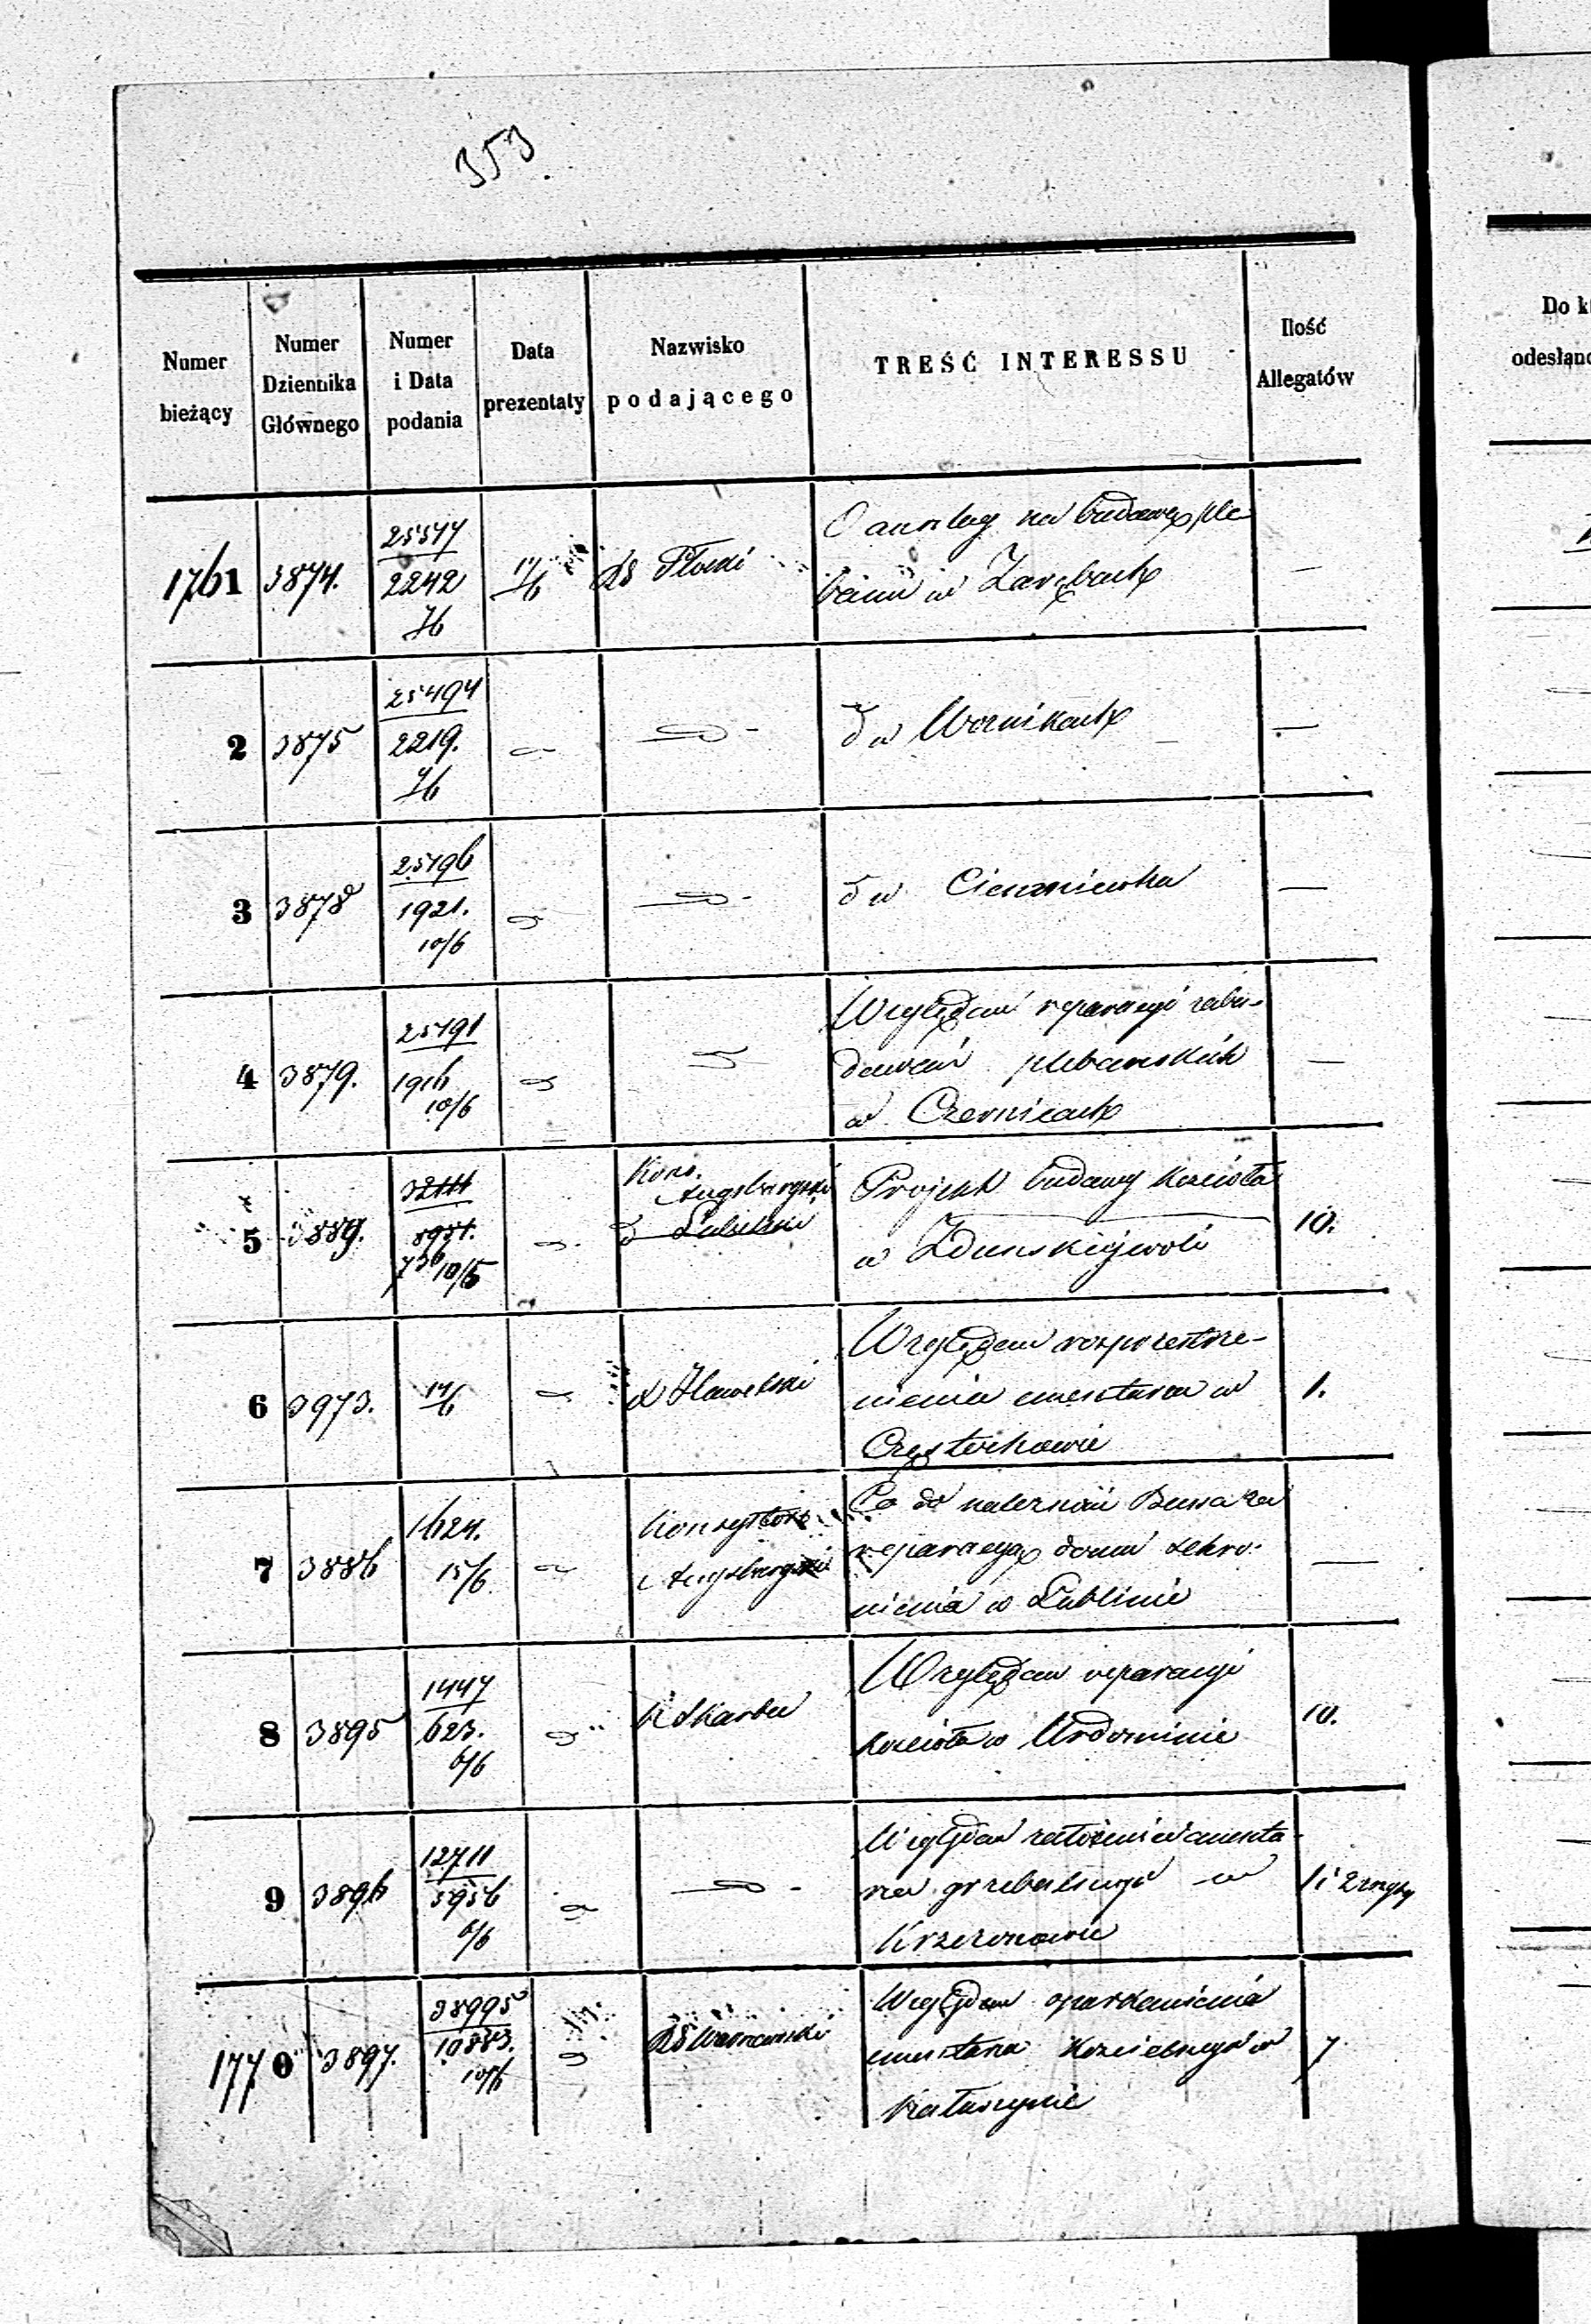 353.
Numer bieżący
Numer Dziennika Głównego
Numer i Data podania
Data prezentaty
Nazwisko podającego
TREŚĆ INTERESSU
Ilość Allegatów
Do k
odesłano
1761 3874. 25577 2242 7/6 17/6 Płocki
O anszlag na budowę ple
banii w Zarębach —
2 3875 25494 2219. 7/6
w Woznikach —
3 3878 25496 1921. 10/6
w Ciemniewku —
4 3879. 25491 1916 10/6
Względem reparacyi zabu-
dowań plebanskich
w Czernicach —
5 3889. 8951. 736 10/5
Kons.
Augsburgski
Projekt budowy kościoła
w Zdunskiejwoli 10.
6 3973. 17/6
Względem rozprzestrze-
nienia cmentarza w
Częstochowie 1.
7 3886 1624. 15/6
Konsystorz
Augsburgski
Co do należności za
reparacyę domu schro-
nienia w Lublinie —
8 3895 1447 623. 6/6 K Skarbu
Względem reparacyi
kościoła w Urdominie 10.
9 3896 12711 5956 6/6
Względem założenia cmenta-
rza grzebalnego w
Krzczonowie 1 i 2
1770 3897. 38995 10883. 10/6 Warszawski
Względem oparkanienia
cmentarza kościelnego w
Kałuszynie 7